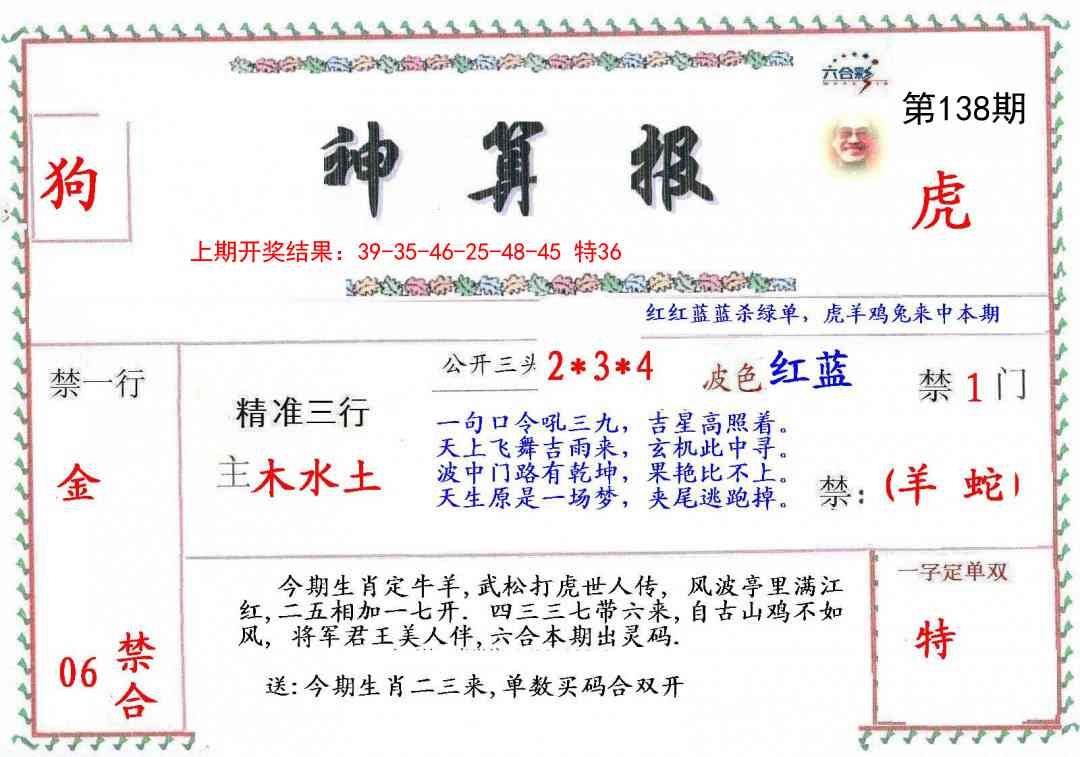 六合彩
第138期
狗
神算报
虎
上期开奖结果：39-35-46-25-48-45 特36
红红蓝蓝杀绿单，虎羊鸡兔来中本期
禁一行
金
06 禁合
精准三行
主木水土
公开三头 2*3*4
波色 红蓝
禁 1 门
一句口令吼三九，吉星高照着。
天上飞舞吉雨来，玄机此中寻。
波中门路有乾坤，果艳比不上。
天生原是一场梦，夹尾逃跑掉。
禁：(羊 蛇)
今期生肖定牛羊,武松打虎世人传，风波亭里满江
红,二五相加一七开．四三三七带六来,自古山鸡不如
风，将军君王美人伴,六合本期出灵码.
送:今期生肖二三来,单数买码合双开
一字定单双
特